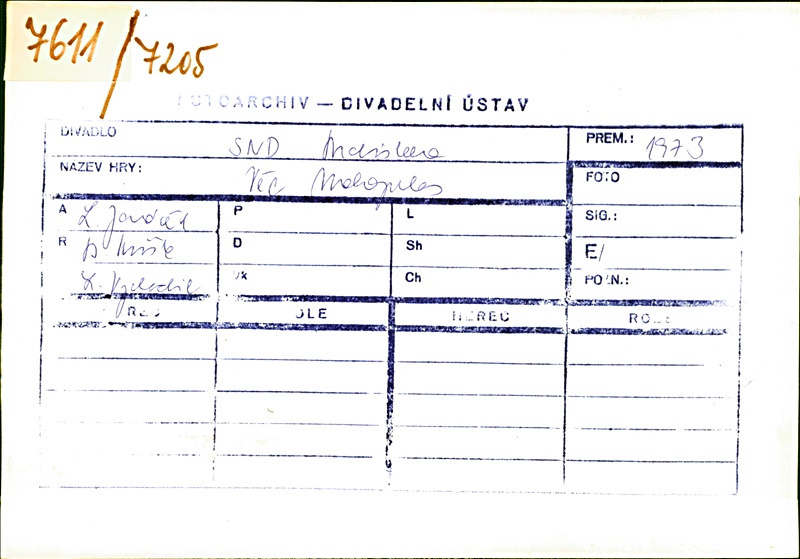 7611/7205
FOTOARCHIV – DIVADELNÍ ÚSTAV
DIVADLO SND PREM.: 1973
NÁZEV HRY: Věc Makropulos FOTO
A L. Janáček P L SIG.:
R D Sh E/
L. Vychodil Vk Ch POZN.:
HEREC ROLE HEREC ROLE